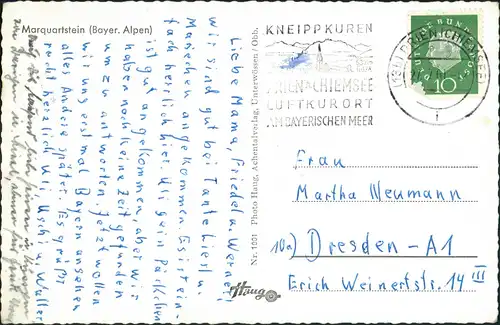 Marquartstein (Bayer. Alpen)
Liebe Mama, Friedel u. Werner!
Wir sind gut bei Tante Liesl u.
Mariechen angekommen. Es ist ein-
fach herrlich hier. Uli gern Päckchen
ist gut angekommen, aber wir
haben noch keine Zeit gefunden
um zu antworten. Jetzt wollen
wir uns erst mal Bayern ansehen
alles Andere später. Es grüßt
recht herzlich Uli, Uschi u. Walter
Nr. 1102 Photo Haug, Aschentalverlag, Unterwössen / Obb.
Haug
KNEIPPKUREN
PRIEN a. CHIEMSEE
LUFTKURORT
AM BAYERISCHEN MEER
PRIEN (CHIEMSEE)
DEUTSCHE BUNDESPOST
10
Frau
Martha Neumann
10a) Dresden - A1
Erich Weinertstr. 14 III